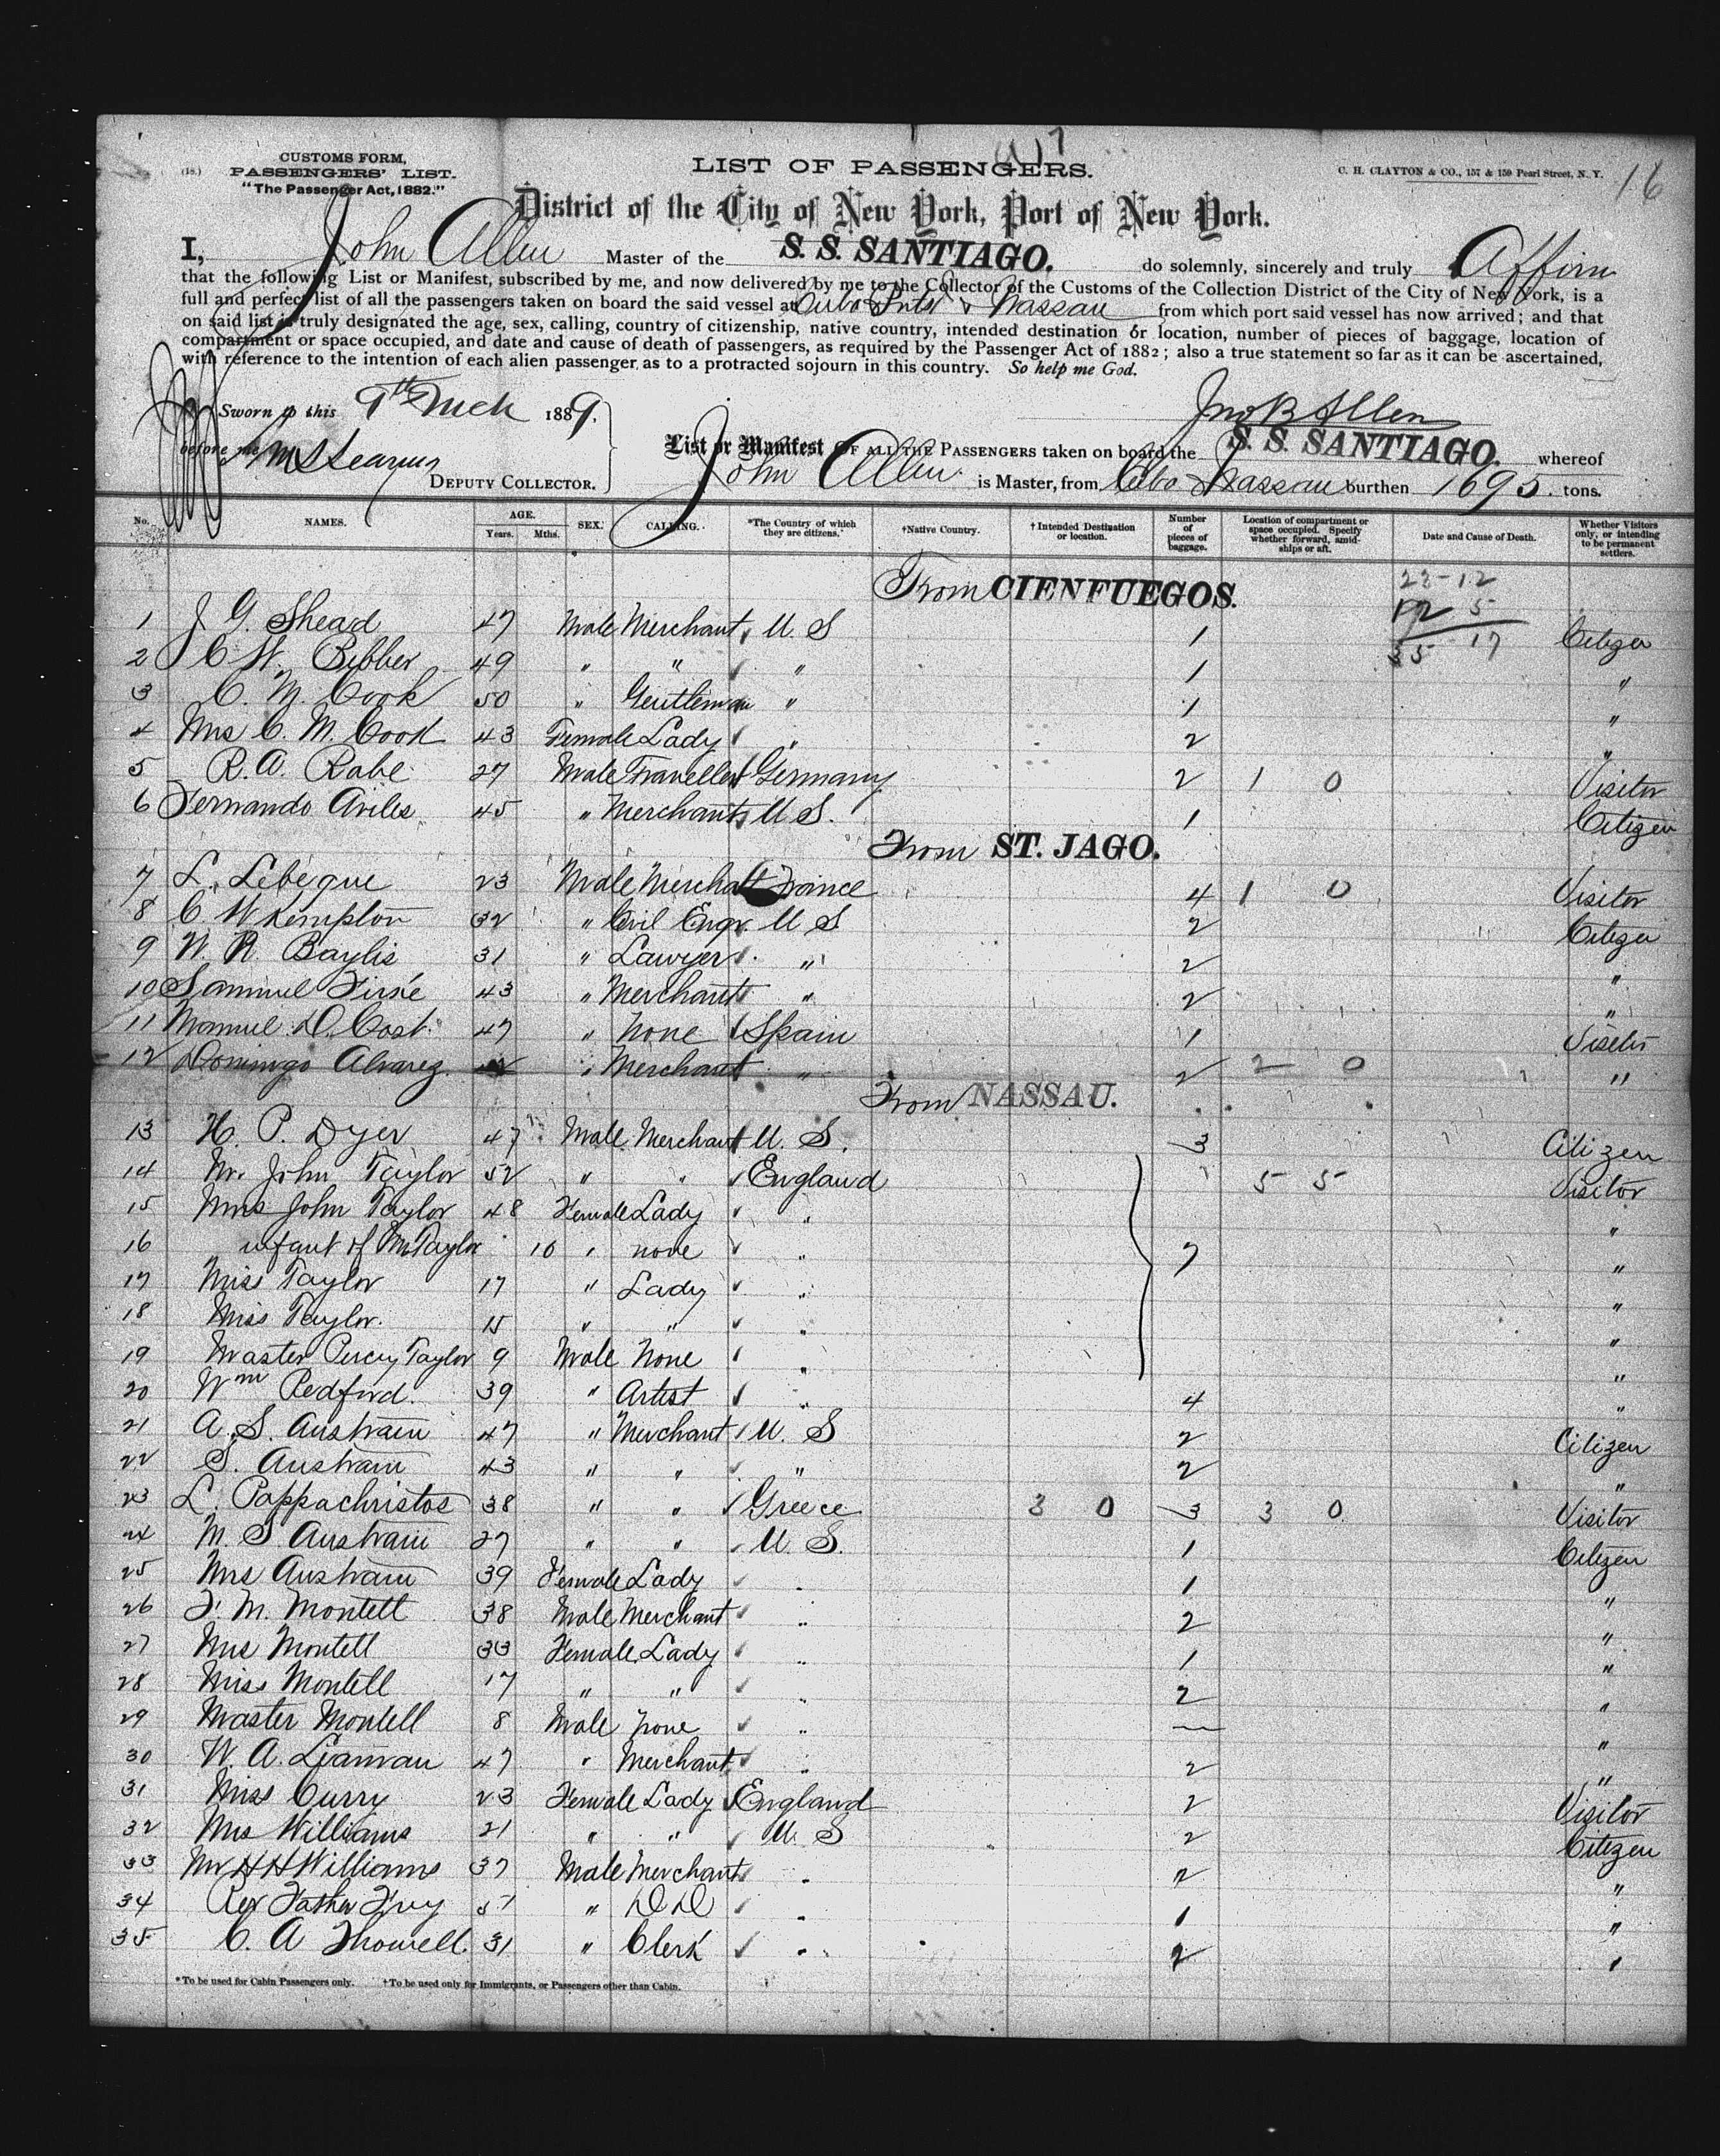 (18.)
CUSTOMS FORM,
PASSENGERS' LIST.
"The Passenger Act, 1882."
LIST OF PASSENGERS.
C. H. CLAYTON & CO., 157 & 159 Pearl Street, N. Y.
16
District of the City of New York, Port of New York.
I, John Allen Master of the S. S. SANTIAGO. do solemnly, sincerely and truly Affirm
that the following List or Manifest, subscribed by me, and now delivered by me to the Collector of the Customs of the Collection District of the City of New York, is a
full and perfect list of all the passengers taken on board the said vessel at Cuba & Nassau from which port said vessel has now arrived; and that
on said list is truly designated the age, sex, calling, country of citizenship, native country, intended destination or location, number of pieces of baggage, location of
compartment or space occupied, and date and cause of death of passengers, as required by the Passenger Act of 1882; also a true statement so far as it can be ascertained,
with reference to the intention of each alien passenger as to a protracted sojourn in this country. So help me God.
Sworn to this 9th Mch 1889.
Jno B Allen
before me
DEPUTY COLLECTOR.
List or Manifest OF ALL THE PASSENGERS taken on board the S. S. SANTIAGO. whereof
John Allen is Master, from Cuba & Nassau burthen 1695. tons.
No. NAMES. AGE. Years. Mths. SEX. CALLING. *The Country of which they are citizens. †Native Country. †Intended Destination or location. Number of pieces of baggage. Location of compartment or space occupied. Specify whether forward, amidships or aft. Date and Cause of Death. Whether Visitors only, or intending to be permanent settlers.
From CIENFUEGOS.
23-12
12 5
35 17
1 J. G. Shead 47 Male Merchant U. S 1 Citizen
2 C. W. Bibber 49 " " " 1 "
3 C. M. Cook 50 " Gentleman " 1 "
4 Mrs C. M. Cook 43 Female Lady " 2 "
5 R. A. Rabe 27 Male Traveller Germany 2 1 0 Visitor
6 Fernando Aviles 45 " Merchant U S. 1 Citizen
From ST. JAGO.
7 L. Lebeque 23 Male Merchant France 4 1 0 Visitor
8 C W Kempton 32 " Civil Engr. U S 2 Citizen
9 W. R. Baylis 31 " Lawyer " 2 "
10 Samuel 43 " Merchant " 2 "
11 Manuel D. Cost 47 " None Spain 1 Visitor
12 Domingo Alvarez " Merchant " 2 2 0 "
From NASSAU.
13 H. P. Dyer 47 Male Merchant U. S. 3 Citizen
14 Mr. John Taylor 52 " " England 5 5 Visitor
15 Mrs John Taylor 48 Female Lady " "
16 infant of Mr Taylor 10 " none " 7 "
17 Miss Taylor 17 " Lady " "
18 Miss Taylor. 15 " " " "
19 Master Percy Taylor 9 Male None " "
20 Wm Redford. 39 " Artist " 4 "
21 A. S. Austrain 47 " Merchant U. S 2 Citizen
22 S. Austrain 43 " " " 2 "
23 L. Pappachristos 38 " " Greece 3 0 3 3 0 Visitor
24 M. S Austrain 27 " " U. S. 1 Citizen
25 Mrs Austrain 39 Female Lady " 1 "
26 F. M. Montell 38 Male Merchant " 2 "
27 Mrs Montell 33 Female Lady " 1 "
28 Miss Montell 17 " " " 2 "
29 Master Montell 8 Male None " — "
30 W. A. Leaman 47 " Merchant " 2 "
31 Miss Curry 23 Female Lady England 2 Visitor
32 Mrs Williams 21 " " U. S 2 Citizen
33 Mr H H Williams 37 Male Merchant " 2 "
34 Rev Father 57 " D D " 1 "
35 C. A 31 " Clerk " 2 "
*To be used for Cabin Passengers only. †To be used only for Immigrants, or Passengers other than Cabin.